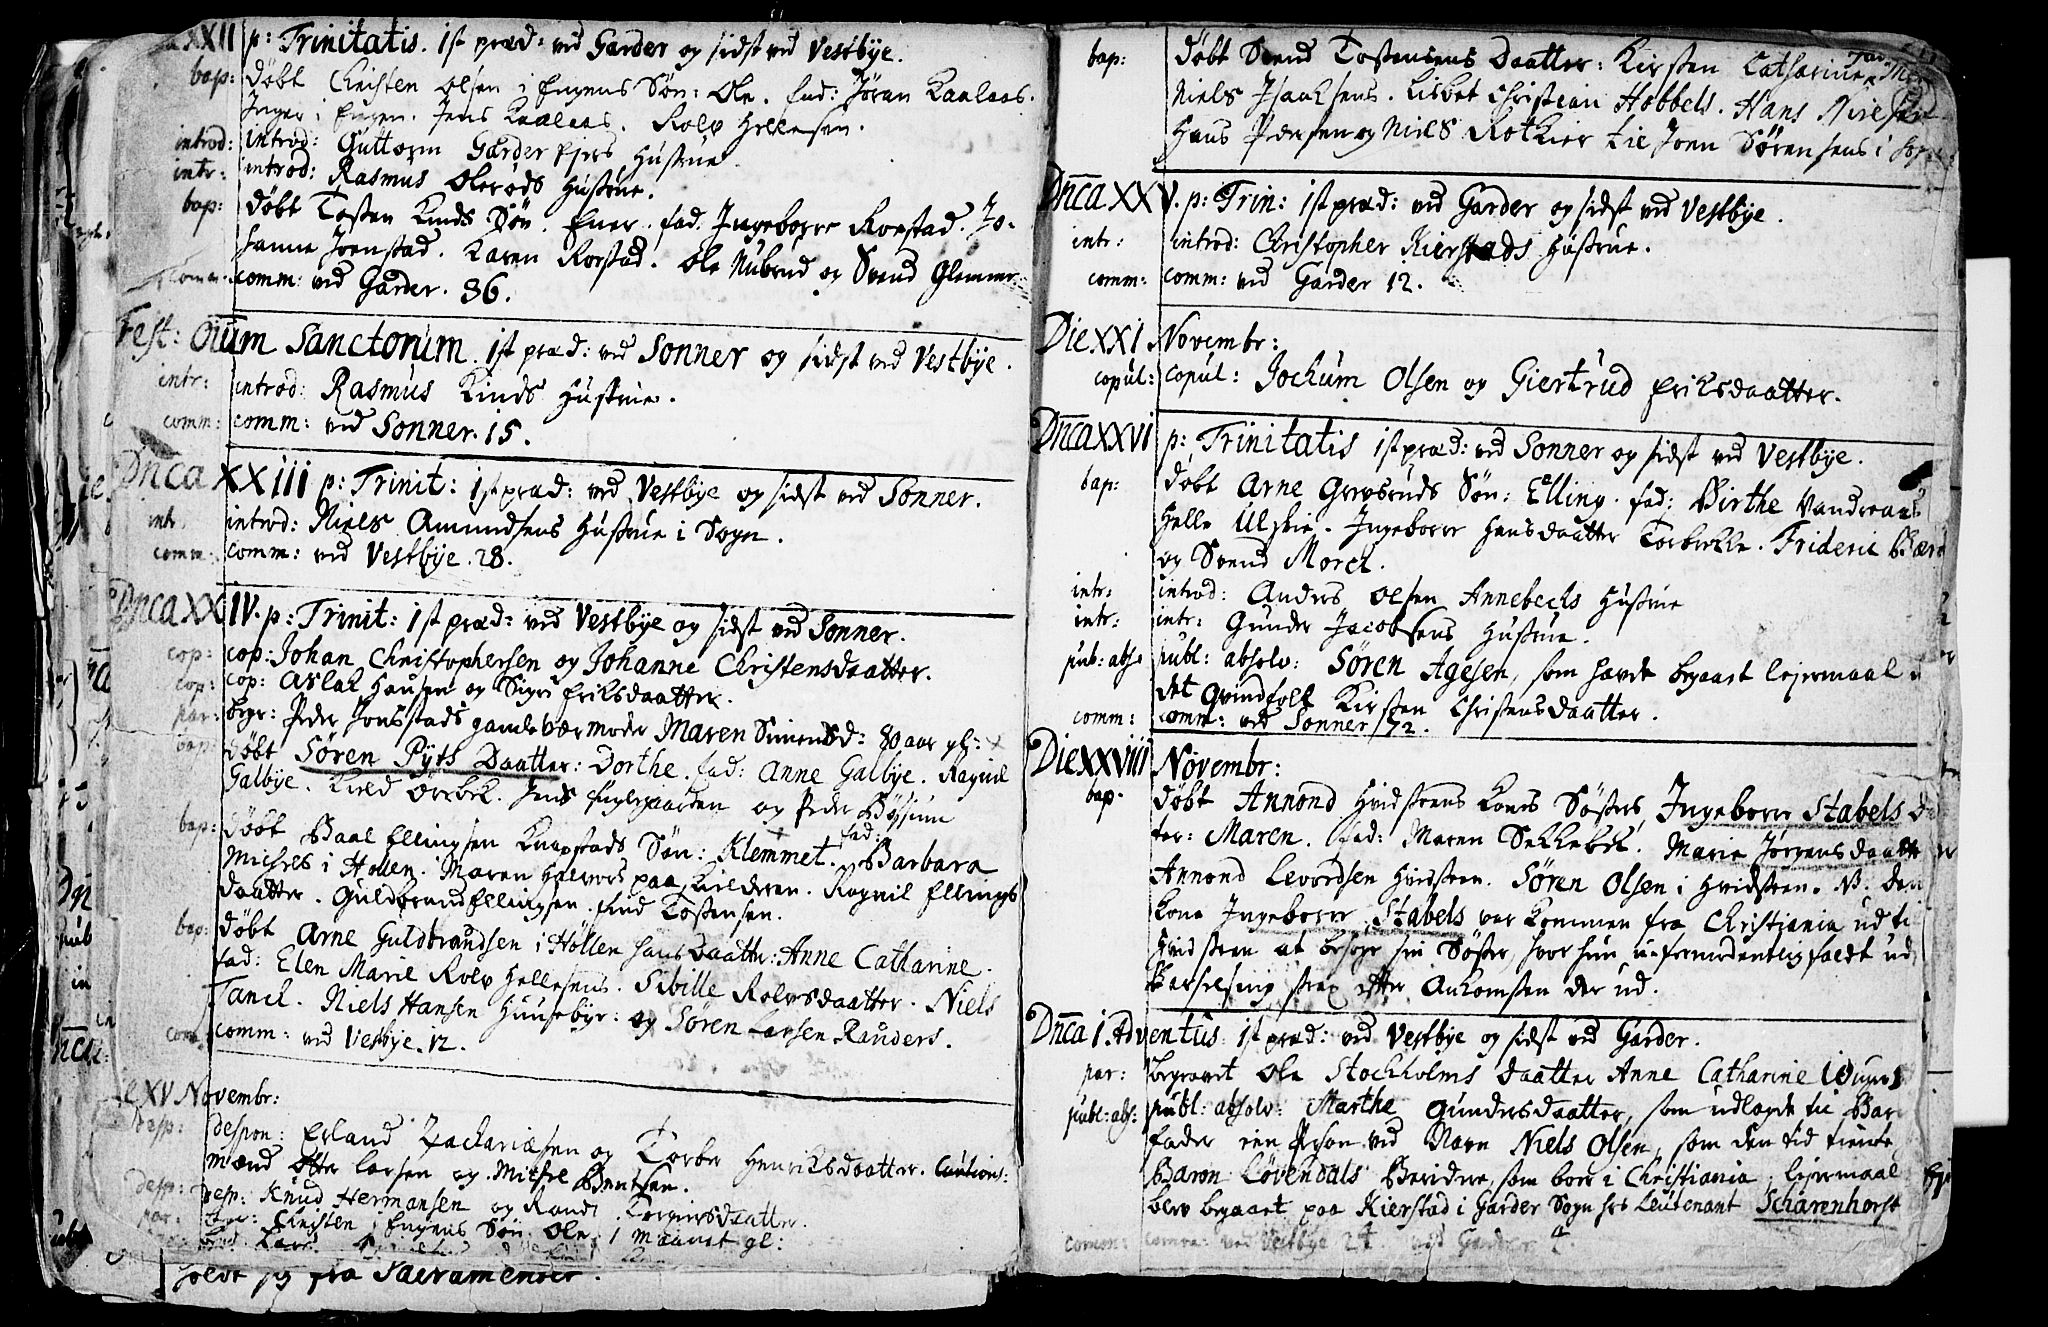 XXII p: Trinitatis. 1st præd: ved Garder og sidst ved Vestbÿe.
bap: døbt Christen Olsen i Engens Søn: Ole. fad: Jøran Kaalaas.
Inger i Engen. Jens Kaalaas. Rolv Hellesen.
introd: introd: Guttorm Garder Ejers Hustrue.
intr: introd: Rasmus Olerøds Hustrue.
bap: døbt Tosten Kinds Søn. Ener. fad. Ingeborre Rorstad. Jo-
hanne Joenstad. Karen Rorstad. Ole Nubrud og Svend Glemmer:
comm: comm: ved Garder. 36.
Fest: Oium Sanctorum. 1st præd: ved Sonner og sidst ved Vestbÿe.
intr: introd: Rasmus Kinds Hustrue.
comm: comm: ved Sonner. 15.
Dnca XXiii p: Trinit: 1st præd: ved Vestbÿe og sidst ved Sonner.
intr. introd: Niels Amundsens Hustrue i Sogn.
comm: comm: ved Vestbÿe. 28.
Dnca XXIV. p: Trinit: 1st præd: ved Vestbÿe og sidst ved Sonner.
cop: cop: Johan Christophersen og Johanne Christensdaatter.
cop: cop: Aslak Hansen og Sigri Eriksdaatter.
par: begr: Peder Jonsstads gamle Værmoder Maren Simensd: 80 aar gl:
bap: døbt Søren Pÿts Daatter: Dorthe. fad: Anne Galbÿe. Ragnil
Galbÿe. Kield Ørebek. Jens Fuglegaarden og Peder Bÿssiun
bap: døbt Baal Ellingsen Knapstads Søn: Klemmet. fad: Barbara
Michels i Hollen. Maren Halvors paa Kielderen. Ragnil Ellings
daatter. Guldbrand Ellingsen. Find Tostensen.
bap: døbt Arne Guldbrandsen i Høllen hans Daatter: Anne Catharine.
fad: Elen Marie Rolv Hellesens. Sibille Rolvsdaatter. Niels
Tanck. Niels Hansen Huusebÿe: og Søren Larsen Randers.
com: comm: ved Vestbÿe. 12.
XV Novembr:
desp: despon: Erland Zachariæsen og Torber Henriksdaatter. Cautions:
mænd Otter Larsen og Michel Bentsen.
desp: desp: Knud Hermansen og Randi Torgiersdaatter.
par: Christen i Engens Søn Ole. 1 maanet gl:
holdt sig fra Sacramentet.
bap: døbt Svend Tostensens Daatter: Kirsten Catharine.
Niels Isachsens. Lisbet Christian Hobbels. Hans Nielsen
Hans Pedersen og Niels Rotkier til Joen Sørensens i
Dnca XXV. p: Trin: 1st præd: ved Garder og sidst ved Vestbÿe.
intr: introd: Christopher Kierstads Hustrue.
comm: comm: ved Garder 12.
Die XXI Novembr:
copul: copul: Jochum Olsen og Giertrud Eriksdaatter.
Dnca XXVI p: Trinitatis 1st præd: ved Sonner og sidst ved Vestbÿe.
bap: døbt Arne Grevsruds Søn: Elling. fad: Birthe
Helle Ulskie. Ingeborre Hansdaatter Torbølle. Frideric
og Svend Morck.
intr: introd: Anders Olsen Annebechs Hustrue
intr: intr: Gunder Jacobsens Hustrue.
pub: abso publ: absolv: Søren Agesen, som havde begaaet lejermaal
det Qvindfolk Kirsten Christensdaatter.
comm: comm: ved Sonner 72.
Die XXVIII Novembr:
bap. døbt Annond Hvidsteens Kones Søsters, Ingeborre Stabels
ter: Maren. fad: Maren Sekkebek. Marie Jørgensdaatter
Annond Levordsen Hvidsteen. Søren Olsen i Hvidsteen. NB. den
Kone Ingeborre Stabels var kommen fra Christiania ud ti
Hvidsteen at besøge sin Søster, hvor hun u-formodentlig faldt ud
Barselseng strax efter Ankomsten der ud.
Dnca i. Adventus 1st præd: ved Vestbÿe og sidst ved Garder.
par: begravet Ole Stockholms Daatter Anne Catharine
publ: abs: publ: absolv: Marthe Gundersdaatter, som udlagde til Bar
fader een Person ved Navn Niels Olsen, som den tid tiente
Baron Løvendals Beridere, som boer i Christiania, lejermaal
blev begaaet paa Kierstad i Garder Sogn hos Leutenant Scharenhorst
comm: comm: ved Vestbÿe 24. ved Garder